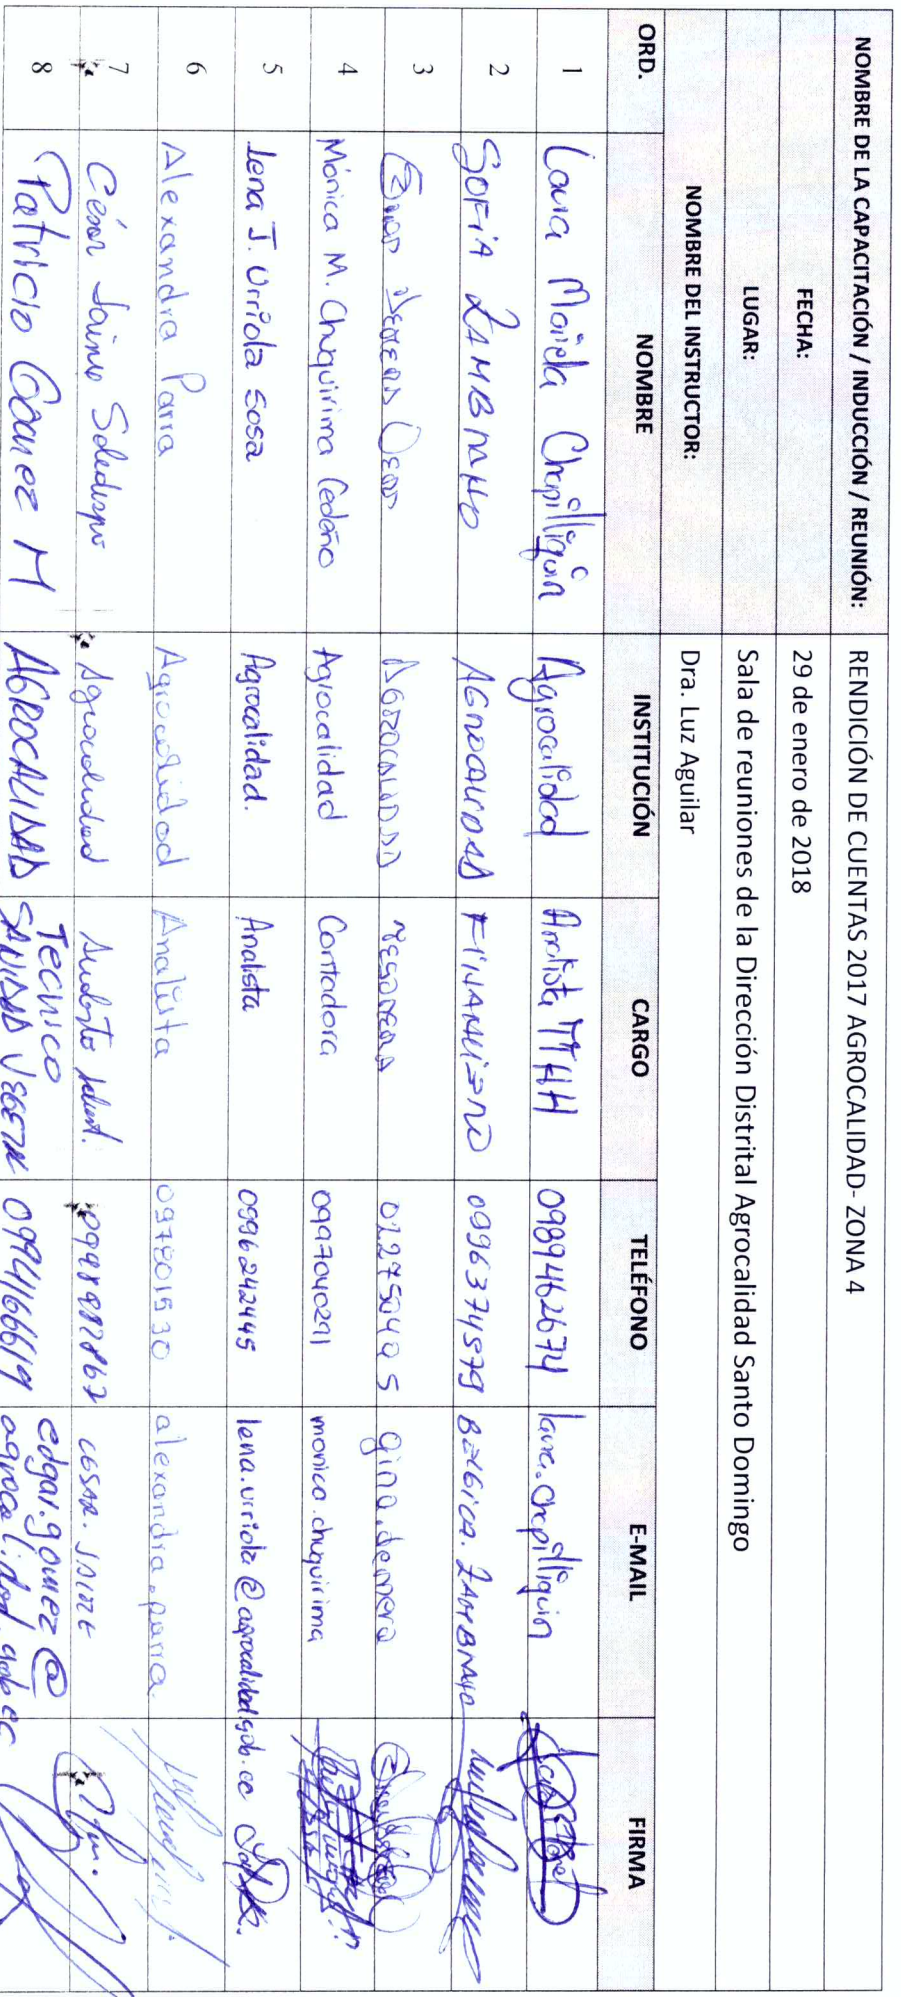 NOMBRE DE LA CAPACITACIÓN / INDUCCIÓN / REUNIÓN: RENDICIÓN DE CUENTAS 2017 AGROCALIDAD- ZONA 4
FECHA: 29 de enero de 2018
LUGAR: Sala de reuniones de la Dirección Distrital Agrocalidad Santo Domingo
NOMBRE DEL INSTRUCTOR: Dra. Luz Aguilar
ORD. NOMBRE INSTITUCIÓN CARGO TELÉFONO E-MAIL FIRMA
1 Laura Chipilliquin Agrocalidad Analista TTHH 0989462674
2 SOFIA ZAMBRANO AGROCALIDAD FINANCIERO 0996374579 BELGICA.ZAMBRANO
3 AGROCALIDAD 022750495
4 Mónica M. Chuquirima Cedeño Agrocalidad Contadora 0997040291 monica.chuquirima
5 Lena J. Urriola Sosa Agrocalidad. Analista 0996242445 lena.urriola@agrocalidad.gob.ec
6 Alexandra Parra Agrocalidad Analista 097801530 alexandra.parra.
7 César Jaime Agrocalidad CESAR.JAIME
8 Patricio Gómez M AGROCALIDAD TECNICO
SANIDAD VEGETAL 0994166619 edgar.gomez@
agrocalidad.gob.ec